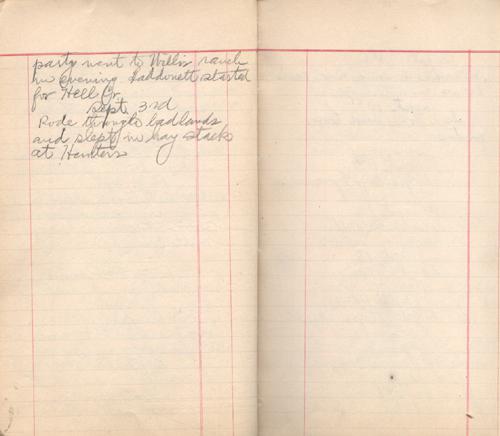 party went to Willis ranch
in evening. Laddonett started
for Hell Cr.
Sept. 3rd
Rode through badlands
and slept in hay stack
at Hunters